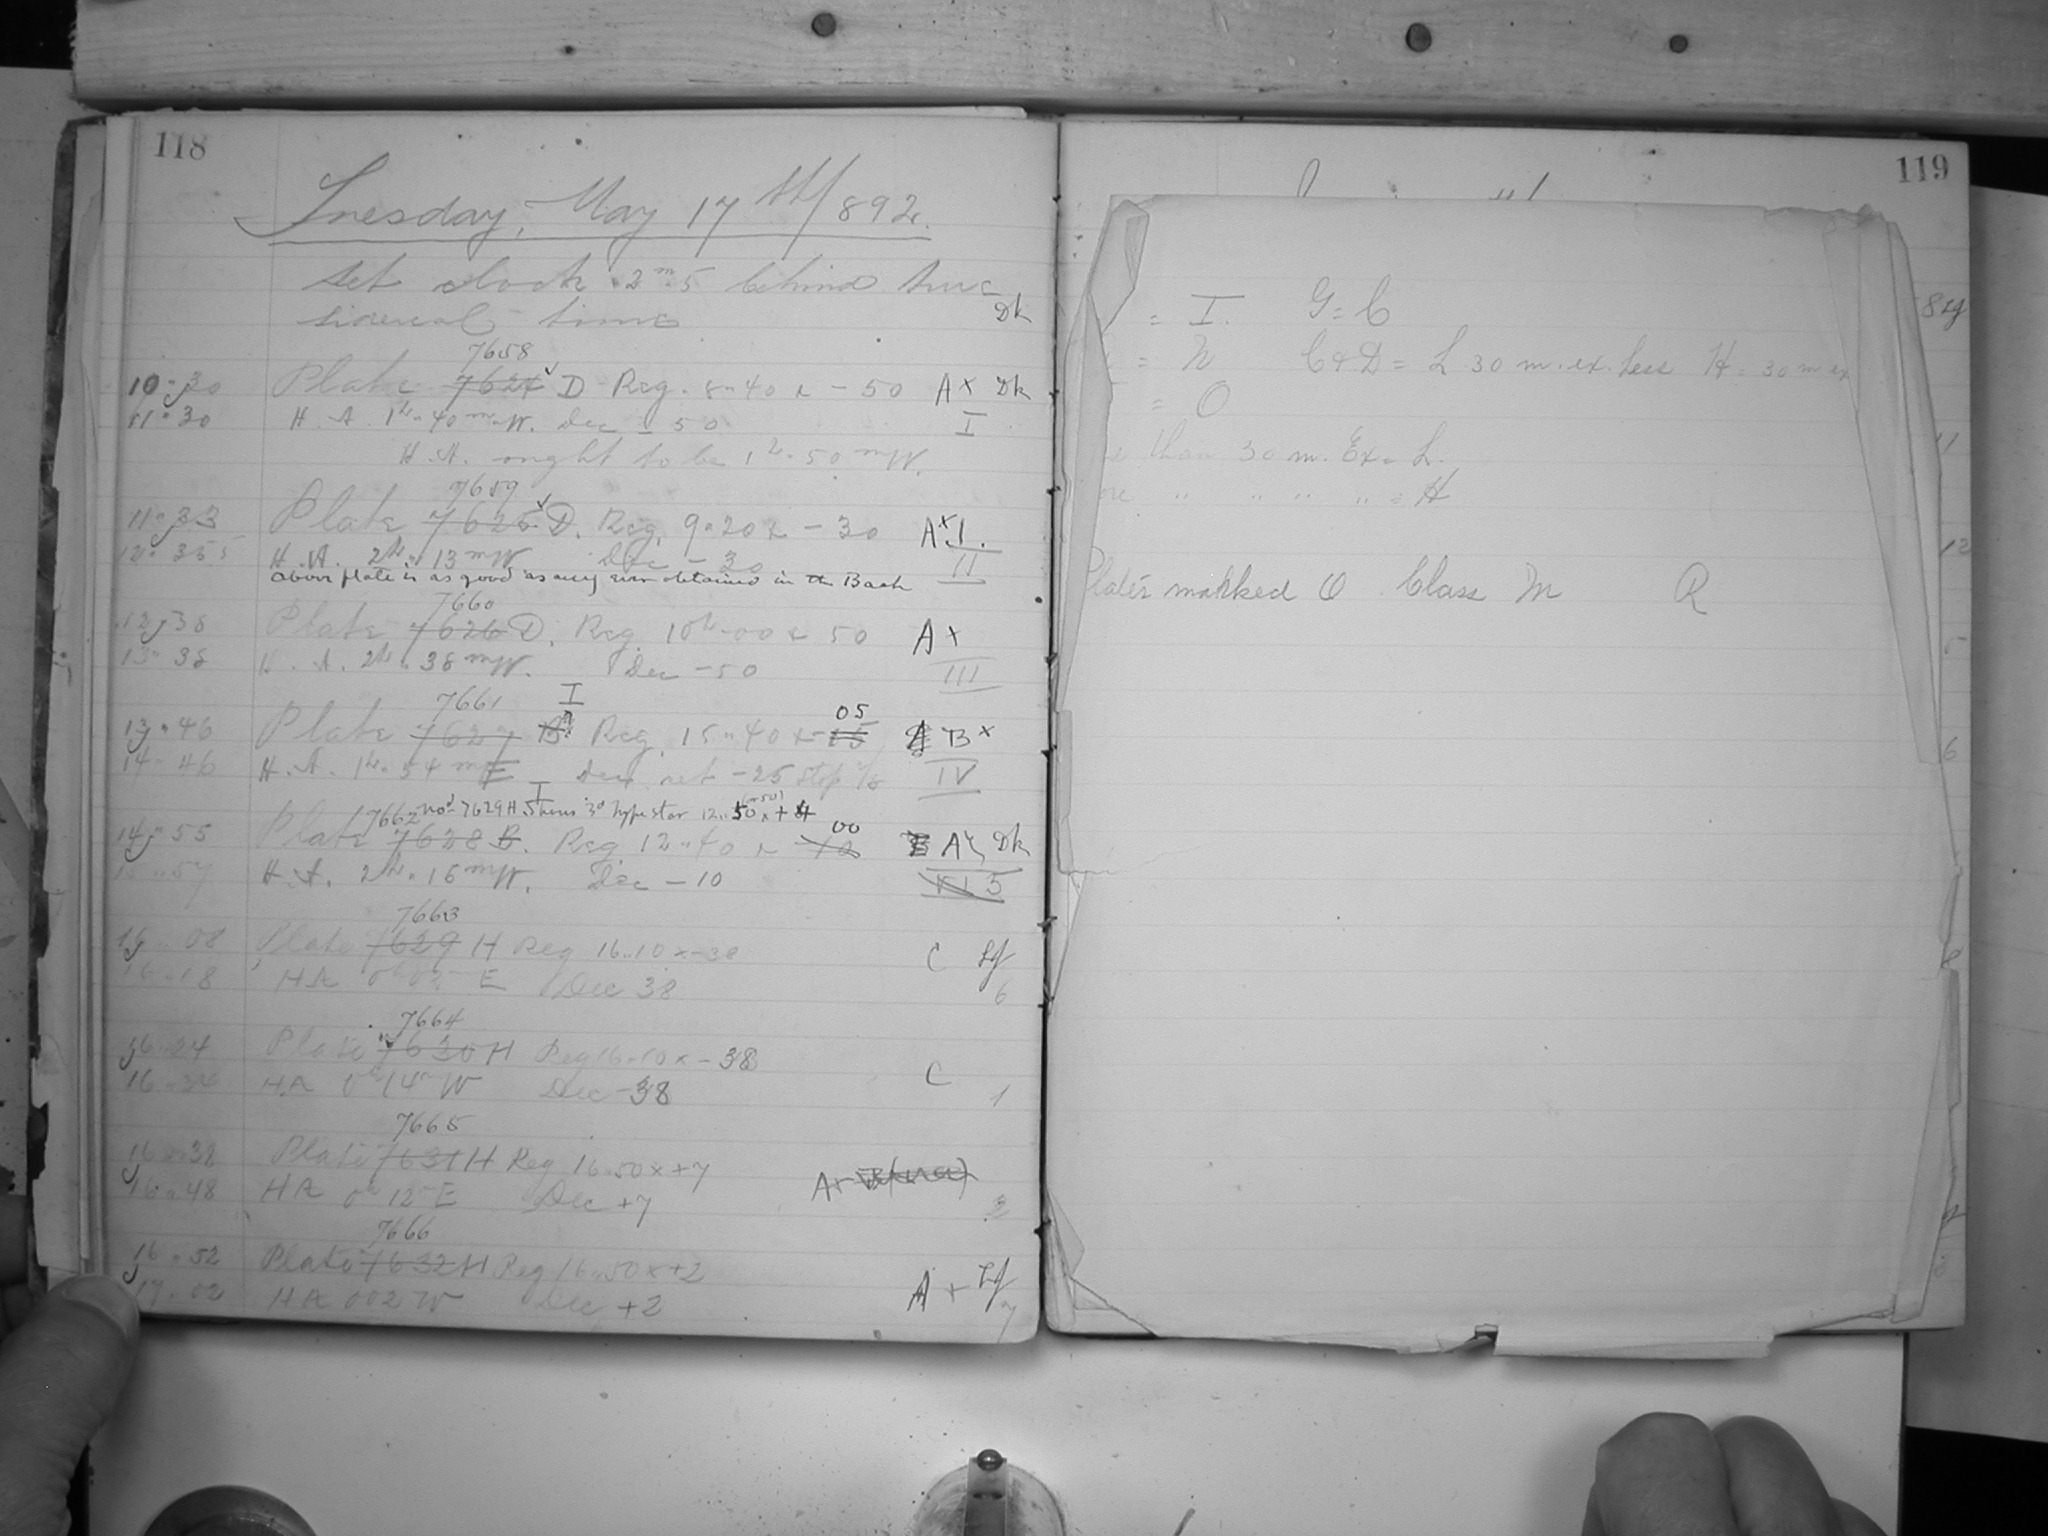 118
Tuesday, May 17th 1892.
Set clock 2m.5 behind true
sidereal time Dk
7658
10.30 Plate 7624 D Reg. 8.40 x - 50 A x Dk
11.30 H.A. 1h.40m W. Dec - 50 I
H.A. ought to be 1h.50m W.
7659
11.33 Plate 7625 D. Reg. 9.20 x - 30 A x I.
H.A. 2h.13m W Dec - 30 II
above plate is as good as any ever obtained in the Bach
7660
12.38 Plate 7626 D. Reg. 10h.00 x 50 A x
13.38 H.A. 2h.38m W. Dec - 50 III
7661 I
13.46 Plate 7627 B Reg. 15.40 x - 15 05 B x
14.46 H.A. 1h.54m E Dec set - 25 IV
7662 7629 H Shows 3d type star 12.50 x + 4
14.55 Plate 7628 B. Reg 12.40 x 10 00 A Dk
15.57 H.A. 2h.16m W. Dec - 10 5
7663
16.08 Plate 7629 H Reg 16.10 x - 38 C Lf
16.18 HA 0h 02 E Dec 38 6
7664
16.24 Plate 7630 H Reg 16.10 x - 38 C
16.34 HA 0h 14m W Dec - 38 1
7665
16.38 Plate 7631 H Reg 16.50 x + 7 A x
16.48 HA 0h 12m E Dec + 7 2
7666
16.52 Plate 7632 H Reg 16.50 x + 2 A x Lf
17.02 HA 002 W Dec + 2
119
= I. G = C
= N C & D = L 30 m. ex. Less H = 30 m ex
= O
than 30 m. Ex = L.
" " " " = H
Plates marked O Class M R